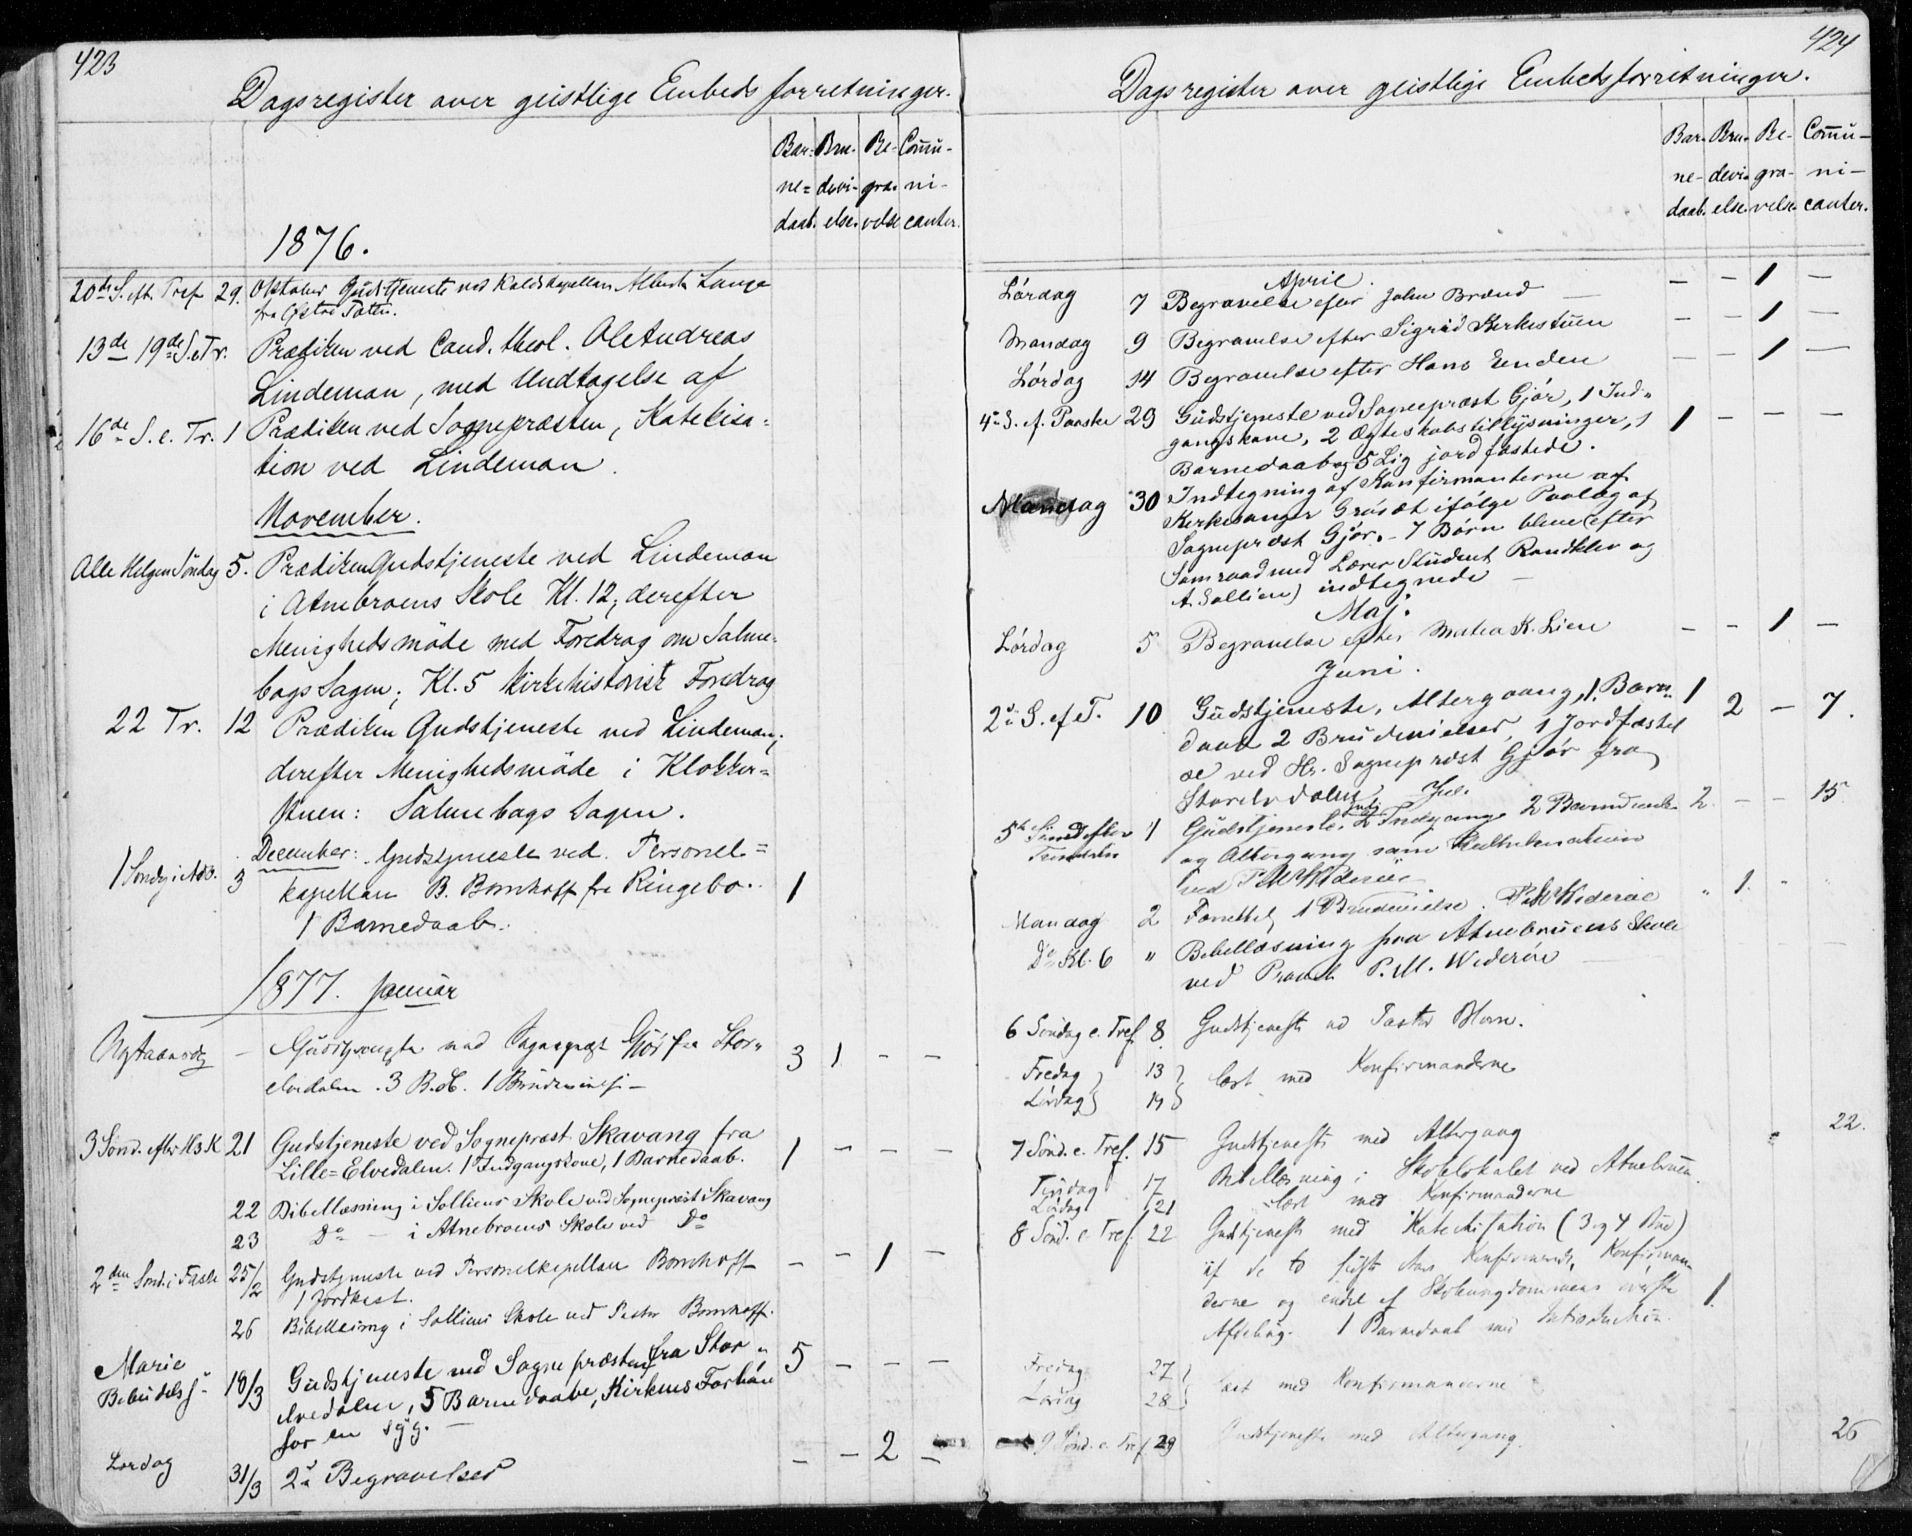 423
Dagsregister over geistlige Embedsforretninger.
Bar= Bru- Be- Com̅u-
ne= devi- gra- ni-
daab. else. velse canter.
1876.
20de S. eft. Tref 29. Oktober Gudstjeneste ved Kaldskapellan Alberth Lange
fra Østre Toten.
13de 19de S. e Tr. Prædiken ved Cand. theol. Ole Andreas
Lindeman, med Undtagelse af
16de S. e. Tr. 1 Prædiken ved Sognepræsten, Katekisa=
tion ved Lindeman.
November.
Alle Helgen Söndag 5. Prædiken Gudstjeneste ved Lindeman
i Atnebroens Skole Kl. 12, derefter
Menighedsmöde med Foredrag om Salme=
bogs Sagen; Kl. 5 Kirkehistorisk Foredrag
22 Tr. 12 Prædiken Gudstjeneste ved Lindeman;
derefter Menighedsmöde i Klokker=
stuen: Salmebogs Sagen.
December:
1 Sondg i Adv. 3 Gudstjeneste ved Personel=
kapellan B. Bomhoff fra Ringebo. 1
1 Barnedaab.
1877. Januar
Nytaarsdg - Gudstjeneste ved Sognepræst Gjör fra Stor=
elvedalen. 3 B.d. 1 3 1 - -
3 Sönd. efter H3K 21 Gudstjeneste ved Sognepræst Skavang fra
Lille=Elvedalen. 1 Indgangskone, 1 Barnedaab. 1 - - -
22 Bibellæsning i Solliens Skole ved Sognepræst Skavang
23 Do - i Atnebroens Skole ved Do
2den Sönd. i Faste 25/2 Gudstjeneste ved Personelkapellan Bomhoff - - 1 -
1 Jordkast.
26 Bibellæsng i Solliens Skole ved Pastor Bomhoff.
Marie
Bebudelses 18/3 Gudstjeneste ved Sognepræsten fra Stor= 5 - - -
elvedalen, 5 Barnedaabe, Kirkens Forbön
for en syg. -
Lördag 31/3 2 Begravelser - - 2 -
424
Dagsregister over geistlige Embedsforretninger.
Bar- Bru- Be- Com̅u-
ne- devi- gra- ni-
daab. else. velse. canter.
April.
Lørdag 7 Begravelse efter John Brænd - - 1 -
Mandag 9 Begravelse efter Sigrid Kirkestuen - - 1 -
Lørdag 14 Begravelse efter Hans Enden - - 1 -
4 S. e. Paaske 29 Gudstjeneste ved Sognepræst Gjør, 1 Ind=
gangskone, 2 Ægteskabstillysninger, 1 1 - - -
Barnedaab og 5 Lig jordfæstede.
Mandag 30 Indtegning af Konfirmanterne af
Kirkesanger Grøsæt ifølge Paalæg af
Sognepræst Gjør. - 7 Børn bleve (efter
Samraad med Lærer Student Randklev og
A. Sollien) indtegnede -
Maj.
Lørdag 5 Begravelse efter Mathea K. Lien - - 1 -
Juni.
2 S. ef T. 10 Gudstjeneste, Altergang, 1 Barne= 1 2 - 7.
daab 2 Brudevielser, 1 Jordfæstel
se ved Hr. Sognepræst Gjør fra
Storelvdalen.
5te Sönd efter 1 Gudstjeneste, 2 Indgangs 2 Barnedaab 2 - - 15
og Altergang samt
ved P.M. Widerøe
Mandag 2 Forrettet 1 Brudevielse. P.M. Widerøe " 1. "
Do Kl. 6 " Bibellæsning paa Atnebruens Skole
ved P.M. Widerøe
6 Söndag e. Tref. 8. Gudstjeneste ved Pastor Horn.
Fredag 13
Lördag 14 læst med Konfirmanderne
7 Sönd. e. Tref. 15 Gudstjeneste med Altergang 22.
Tirsdag 17 Bibellæsning i Skolelokalet ved Atnebruen.
Lördag 21 læst med Konfirmanderne
8 Sönd. e Tref. 22 Gudstjeneste med Katechisation (3 og 4 Bud)
af de to sidste Aars Konfirmerede, Konfirman=
derne og endel af Skoleungdommens øverste
Afdeling. 1 Barnedaab med Introduction. 1.
Fredag 27
Lördag 28 læst med Konfirmanderne
9 Sönd. e. Tref 29 Gudstjeneste med Altergang. 26